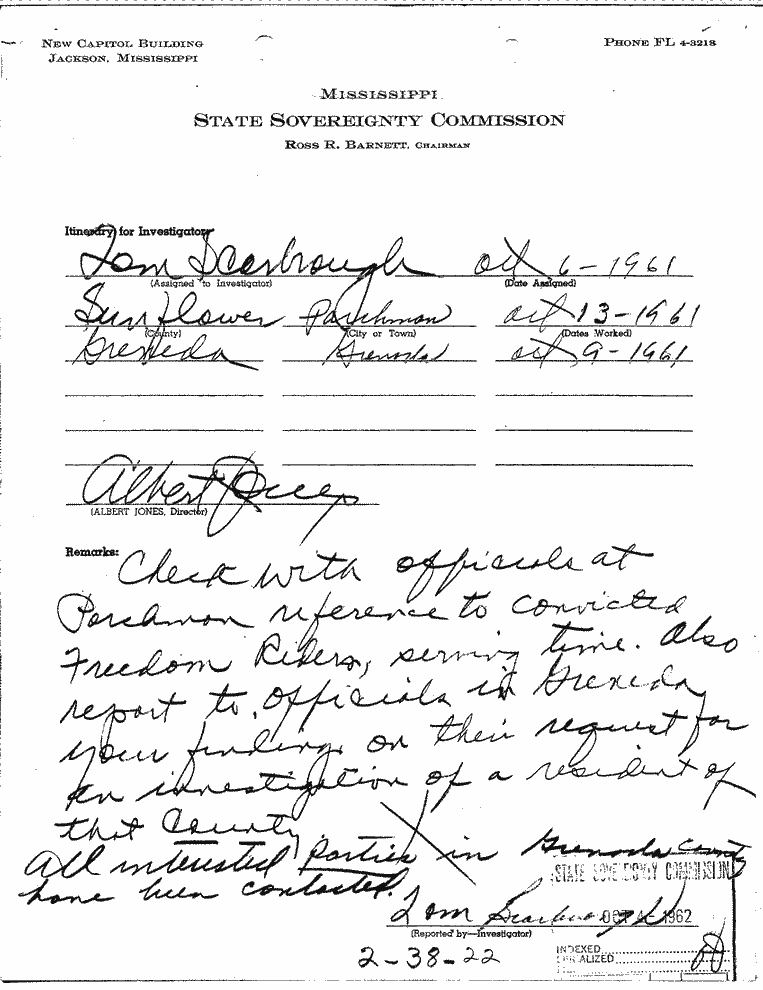 NEW CAPITOL BUILDING
JACKSON, MISSISSIPPI
PHONE FL 4-3218
MISSISSIPPI
STATE SOVEREIGNTY COMMISSION
ROSS R. BARNETT, CHAIRMAN
Itinerary for Investigator
Tom Scarbrough Oct 6-1961
(Assigned to Investigator) (Date Assigned)
Sunflower Parchman Oct 13-1961
(County) (City or Town) (Dates Worked)
Greneda Grenada Oct 9-1961
Albert Jones
(ALBERT JONES, Director)
Remarks: Check with officials at
Parchman reference to convicted
Freedom Riders, serving time. Also
report to officials in Greneda
your findings on their request for
an investigation of a resident of
that County
All interested Parties in Grenada County
have been contacted.
STATE SOVEREIGNTY COMMISSION
Tom Scarbrough
OCT 4 - 1962
(Reported by—Investigator)
2-38-22
INDEXED
SERIALIZED